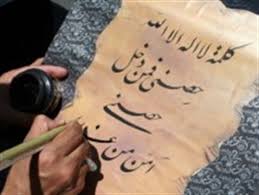 کلمة لا اله الا الله
حصنی فمن دخل
حصنی
امن من عذ